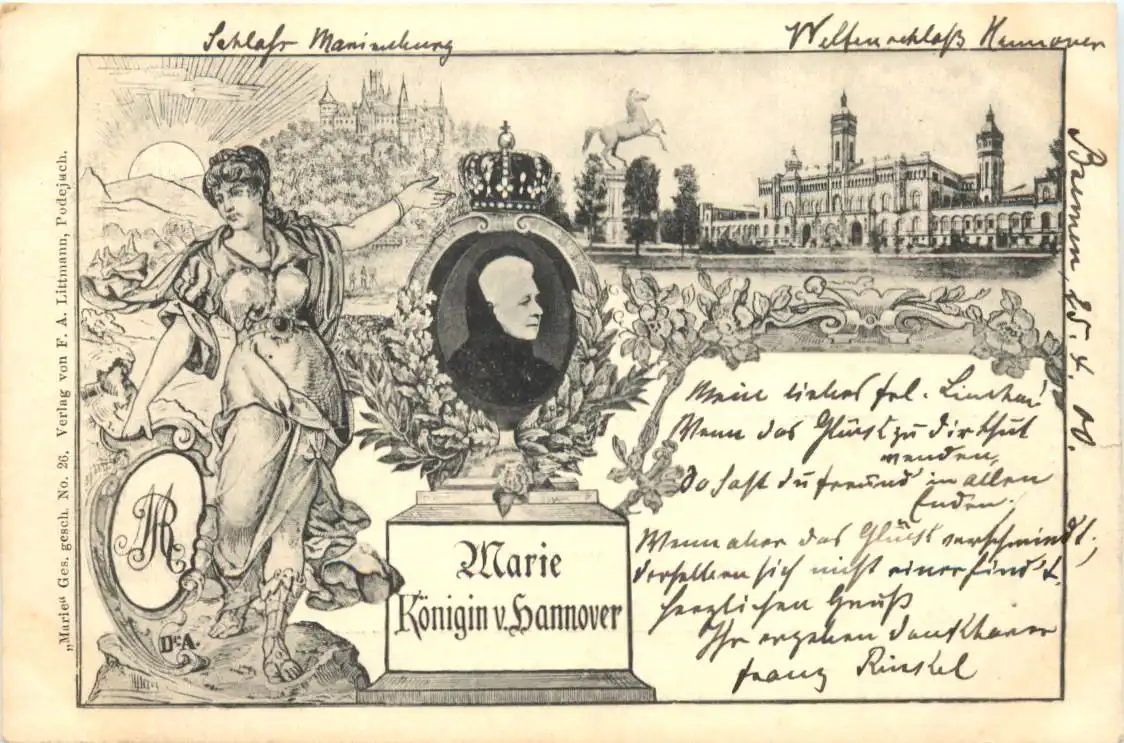 Schloss Marienburg
Welfenschloß Hannover
„Marie“ Ges. gesch. No. 26. Verlag von F. A. Littmann, Podejuch.
MR
D.A.
Marie
Königin v. Hannover
Barmen, 25. 4. 00.
Mein liebes Frl.
Wenn das Glück zu dir thut
wenden,
So hast du freund in allen
Enden.
Wenn aber das Glück verschwindt,
derselben sich nicht einer findt.
Herzlichen Gruß
Ihr ergeben dankbarer
Franz Rinkel